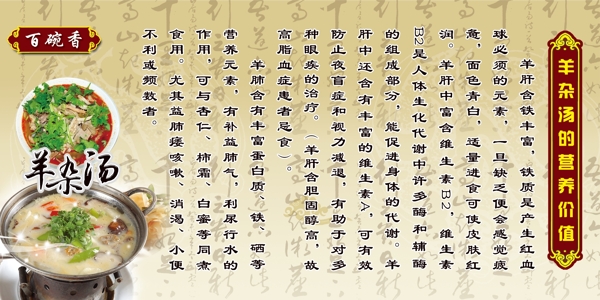 羊杂汤的营养价值
羊肝含铁丰富，铁质是产生红血
球必须的元素，一旦缺乏便会感觉疲
惫，面色青白，适量进食可使皮肤红
润。羊肝中富含维生素B2，维生素
B2是人体生化代谢中许多酶和辅酶
的组成部分，能促进身体的代谢。羊
肝中还含有丰富的维生素A，可有效
防止夜盲症和视力减退，有助于对多
种眼疾的治疗。（羊肝含胆固醇高，故
高脂血症患者忌食）。
羊肺含有丰富蛋白质、铁、硒等
营养元素，有补益肺气，利尿行水的
作用，可与杏仁、柿霜、白蜜等同煮
食用。尤其益肺痿咳嗽、消渴、小便
不利或频数者。
百碗香
羊杂汤